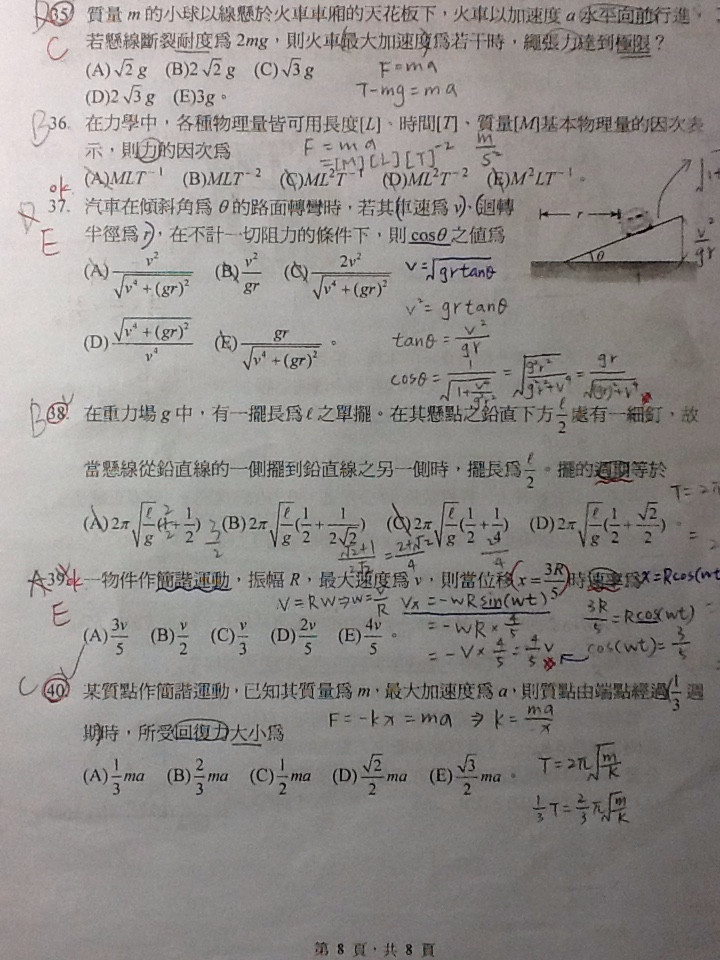 D 35. 質量 m 的小球以線懸於火車車廂的天花板下，火車以加速度 a 水平向前行進，
C 若懸線斷裂耐度為 2mg，則火車最大加速度為若干時，繩張力達到極限？
(A)√2 g (B)2√2 g (C)√3 g F=ma
(D)2√3 g (E)3g。 T-mg=ma
B 36. 在力學中，各種物理量皆可用長度[L]、時間[T]、質量[M]基本物理量的因次表
示，則力的因次為 F=ma m/s²
=[M][L][T]⁻²
ok (A)MLT⁻¹ (B)MLT⁻² (C)ML²T⁻¹ (D)ML²T⁻² (E)M²LT⁻¹。
37. 汽車在傾斜角為 θ 的路面轉彎時，若其車速為 v，迴轉
E 半徑為 r，在不計一切阻力的條件下，則 cosθ 之值為
r θ v²/gr
(A) v²/√(v⁴+(gr)²) (B) v²/gr (C) 2v²/√(v⁴+(gr)²) v=√(grtanθ)
v²=grtanθ
(D) √(v⁴+(gr)²)/v⁴ (E) gr/√(v⁴+(gr)²)。 tanθ=v²/gr
cosθ=1/√(1+v⁴/g²r²)=√(g²r²/(g²r²+v⁴))=gr/√((gr)²+v⁴)
B 38. 在重力場 g 中，有一擺長為 ℓ 之單擺。在其懸點之鉛直下方 ℓ/2 處有一細釘，故
當懸線從鉛直線的一側擺到鉛直線之另一側時，擺長為 ℓ/2。擺的週期等於
T=2π
(A)2π√(ℓ/g)(1+1/2) (B)2π√(ℓ/g)(1/2+1/(2√2)) (C)2π√(ℓ/g)(1/2+1/2) (D)2π√(ℓ/g)(1/2+√2/2)。
3/2 (√2+1)/2√2=(2+√2)/4
A 39. ok 一物件作簡諧運動，振幅 R，最大速度為 v，則當位移 x=3R/5 時速率為 x=Rcos(wt
E V=RW⇒w=V/R Vx=-wRsin(wt) 3R/5=Rcos(wt)
=-wR×4/5 cos(wt)=3/5
(A)3v/5 (B)v/2 (C)v/3 (D)2v/5 (E)4v/5。 =-v×4/5=4/5 v
C 40. 某質點作簡諧運動，已知其質量為 m，最大加速度為 a，則質點由端點經過 1/3 週
期時，所受回復力大小為 F=-kx=ma ⇒ k=ma/-x
(A)1/3 ma (B)2/3 ma (C)1/2 ma (D)√2/2 ma (E)√3/2 ma。 T=2π√(m/k)
1/3 T=2/3 π√(m/k)
第 8 頁，共 8 頁